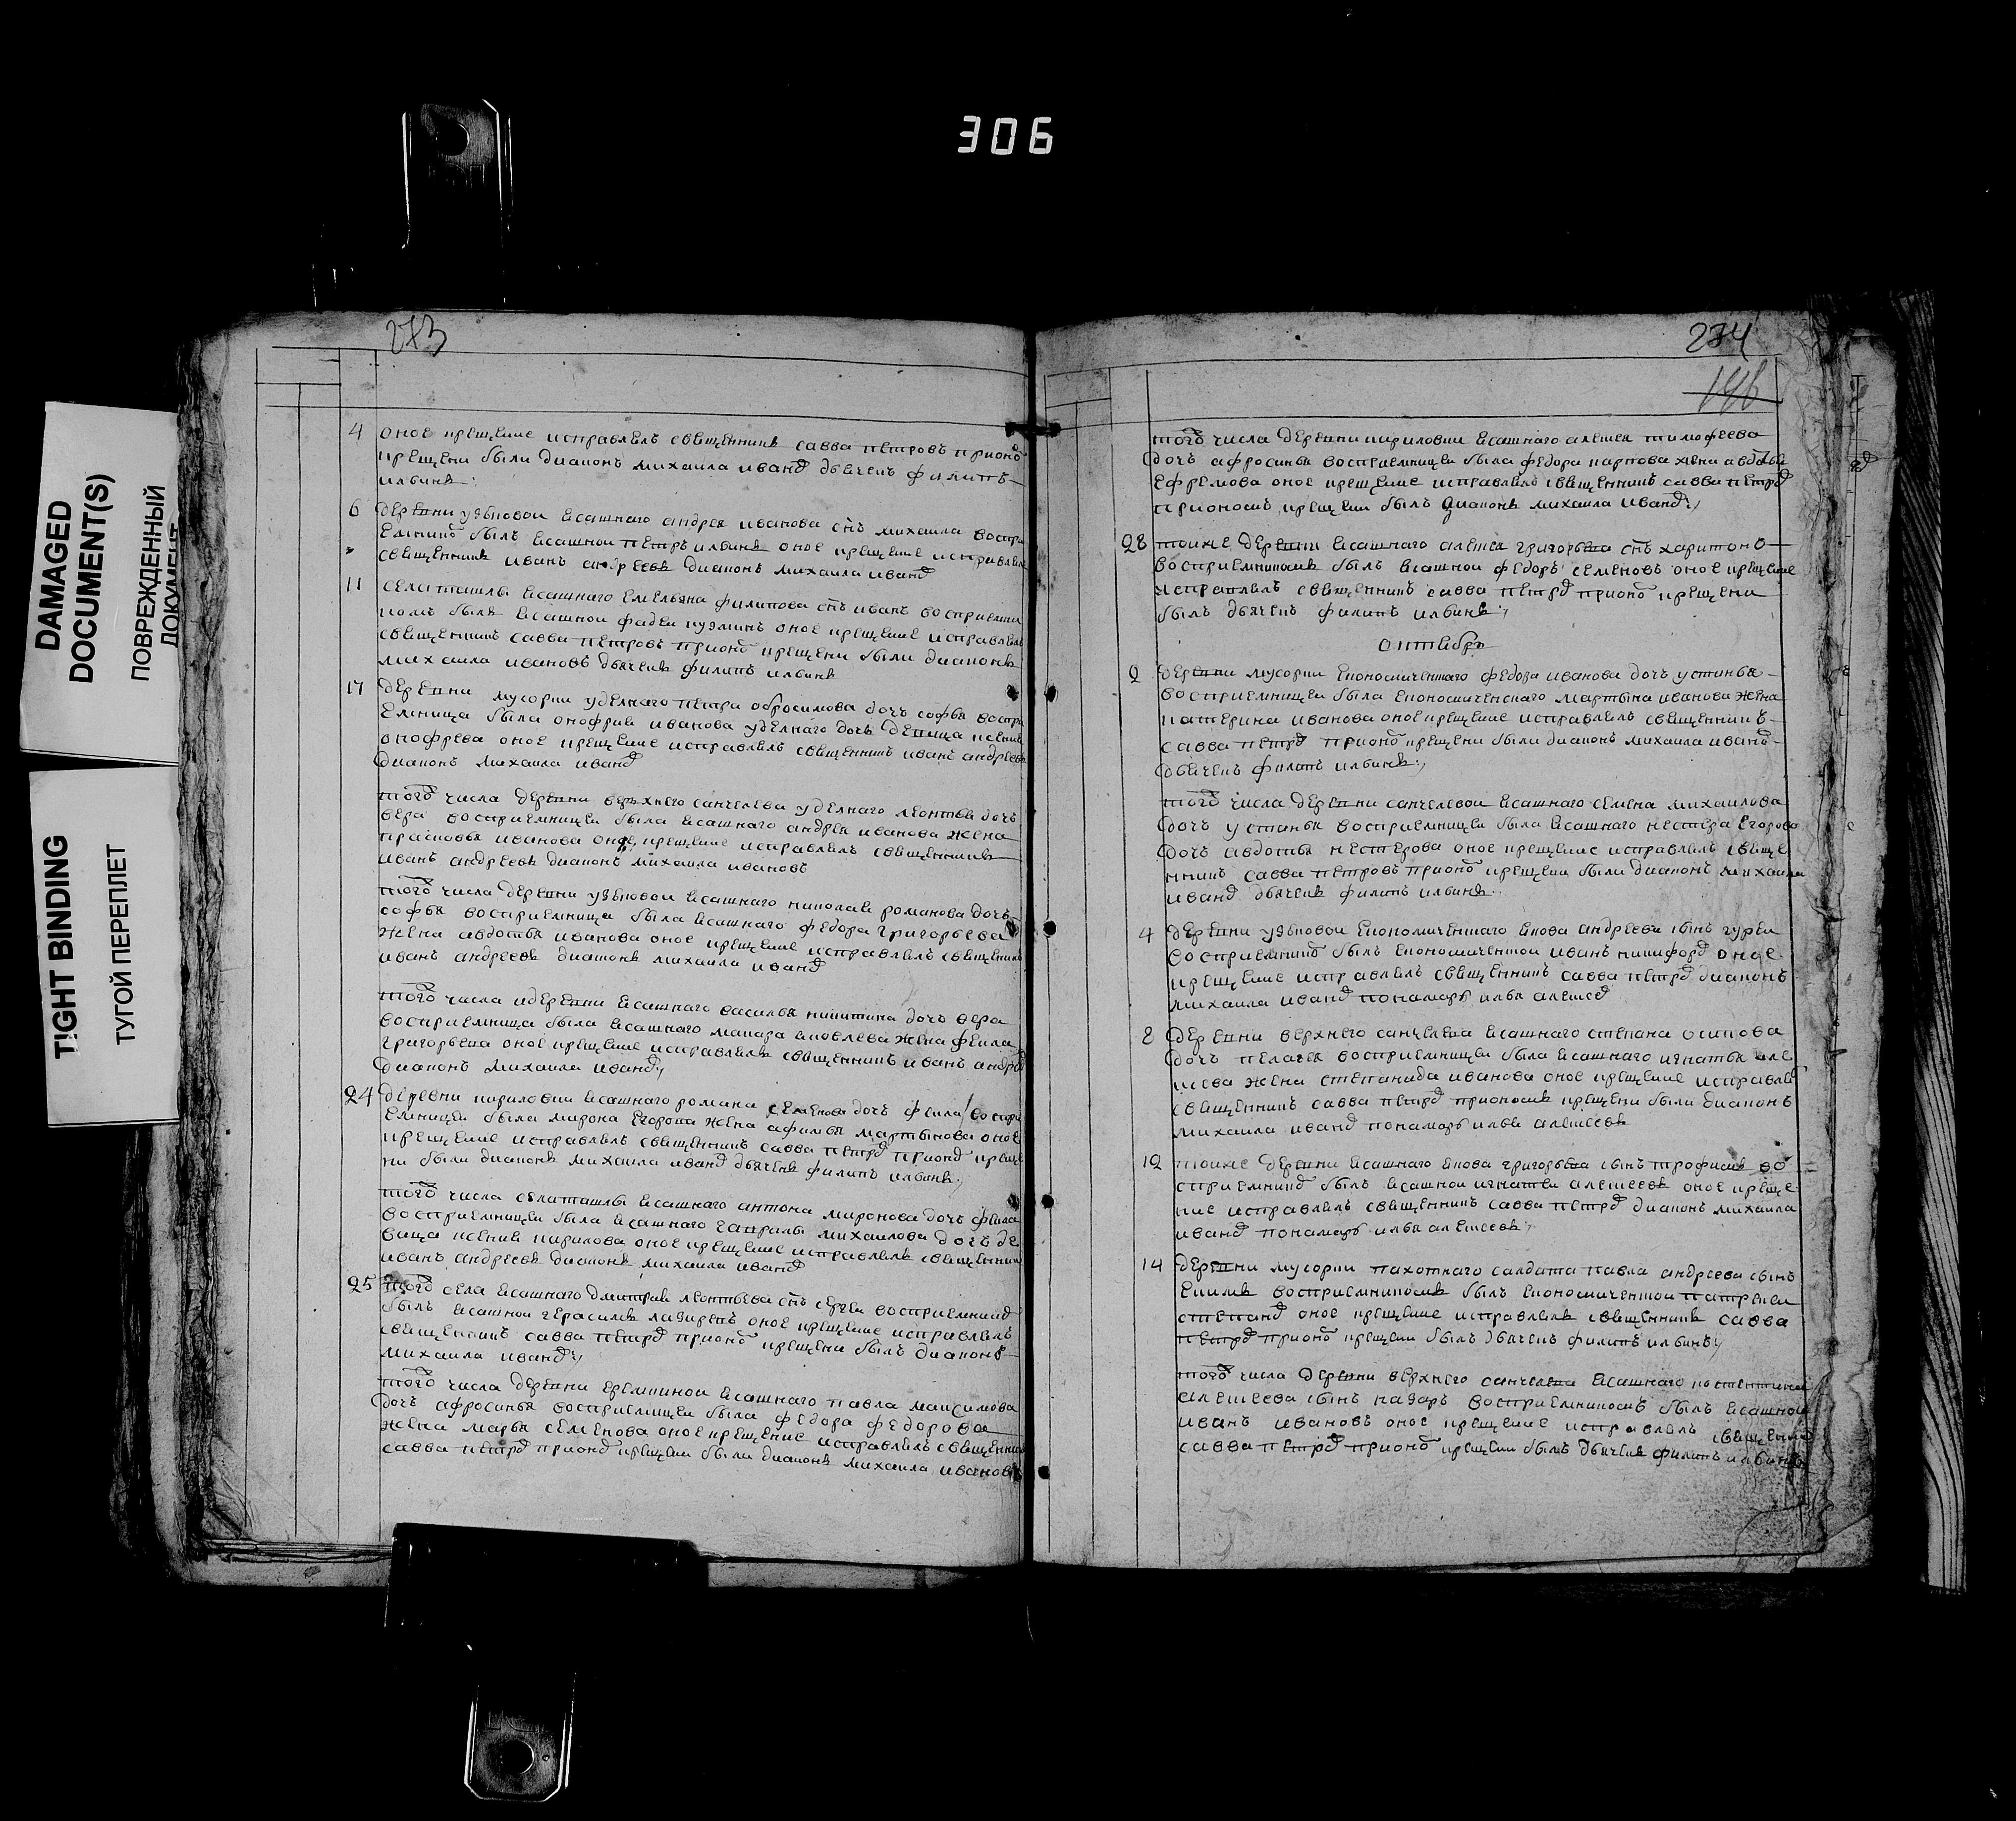 306
DAMAGED
DOCUMENT(S)
ПОВРЕЖДЕННЫЙ
ДОКУМЕНТ
TIGHT BINDING
ТУГОЙ ПЕРЕПЛЕТ
273
4 оное крещение исправлялъ священникъ савва петровъ прионо
крещени были диаконъ михаила ивано дьячекъ филипъ
ильинъ
6 деревни узюковои ясашнаго андрея иванова снъ михаила воспри
емнико былъ ясашнои петръ ильинъ оное крещение исправлялъ
священникъ иванъ андреевъ диаконъ михаила ивано
11 села ташлы ясашнаго емельяна филипова снъ иванъ восприемни
комъ былъ ясашнои фадеи кузминъ оное крещение исправлялъ
священникъ савва петровъ прионо крещени были диаконъ
михаила ивановъ дьячекъ филипъ ильинъ
17 деревни мусорки уделнаго петра обросимова дочь софья воспри
емница была онофрия иванова уделнаго дочь девица ксения
онофрева оное крещение исправлялъ священникъ иванъ андреевъ
диаконъ михаила ивано
того числа деревни верхнего санчелева уделнаго леонтья дочь
вера восприемницеи была ясашнаго андрея иванова жена
прасковья иванова оное крещение исправлялъ священникъ
иванъ андреевъ диаконъ михаила ивановъ
того числа деревни узюковои ясашнаго николая романова дочь
софья восприемница была ясашнаго федора григорьева
жена авдотья иванова оное крещение исправлялъ священникъ
иванъ андреевъ диаконъ михаила ивано
того числа идеревни ясашнаго василья никитина дочь вера
восприемница была ясашнаго макара яковлева жена фекла
григорьева оное крещение исправлялъ священникъ иванъ андре
диаконъ михаила ивано
24 деревни кириловки ясашнаго романа семенова дочь фекла воспри
емницеи была мирона егорова жена афимья мартынова оное
крещение исправлялъ священникъ савва петро прионо креще
ни были диаконъ михаила ивано дьячекъ филипъ ильинъ
того числа села ташлы ясашнаго антона миронова дочь фекла
восприемницеи была ясашнаго гаврилы михаилова дочь де
вица ксения кирилова оное крещение исправлялъ священникъ
иванъ андреевъ диаконъ михаила ивано
25 того села ясашнаго дмитрия леонтьева снъ сергеи восприемнико
былъ ясашнои герасимъ лазиревъ оное крещение исправлялъ
священникъ савва петро прионо крещени былъ диаконъ
михаила ивано
того числа деревни еремкинои ясашнаго павла максимова
дочь афросинья восприемницеи была федора федорова
жена марья семенова оное крещение исправлялъ священникъ
савва петро прионо крещеи были диаконъ михаила ивановъ
274
того числа деревни кириловки ясашнаго алексея тимофеева
дочь афросинья восприемницеи была федора карпова жена авдотья
ефремова оное крещение исправлялъ священникъ савва петро
приономъ крещеи былъ диаконъ михаила ивано
28 тоиже деревни ясашнаго алексея григорьева снъ харитонъ
восприемникомъ былъ ясашнои федоръ семеновъ оное крещение
исправлялъ священникъ савва петро прионо крещени
былъ дьячекъ филипъ ильинъ
октябрь
2 деревни мусорки економическаго федора иванова дочь устинья
восприемницеи была економическаго мартына иванова жена
катерина иванова оное крещение исправлялъ священникъ
савва петро прионо крещени были диаконъ михаила иванъ
дьячекъ филипъ ильинъ
того числа деревни санчелевои ясашнаго семена михаилова
дочь устинья восприемницеи была ясашнаго нестера егорова
дочь авдотья нестерова оное крещение исправлялъ свяще
нникъ савва петровъ прионо крещеи были диаконъ михаила
ивано дьячекъ филипъ ильинъ
4 деревни узюковои економическаго якова андреева сынъ гуреи
восприемнико былъ економическои иванъ никифоро оное
крещение исправлялъ священникъ савва петро диаконъ
михаила ивано понамарь илья алексе
8 деревни верхнего санчелева ясашнаго степана осипова
дочь пелагея восприемницеи была ясашнаго игнатья але
ксева жена степанида иванова оное крещение исправля
священникъ савва петро прионосъ крещени были диаконъ
михаила ивано понамарь илья алексеевъ
12 тоиже деревни ясашнаго якова григорьева сынъ трофимъ во
сприемнико былъ ясашнои игнатеи алексеевъ оное креще
ние исправлялъ священникъ савва петро диаконъ михаила
ивано понамарь илья алексеевъ
14 деревни мусорки пахотнаго салдата павла андреева сынъ
екимъ восприемникомъ былъ економическои патрикеи
степано оное крещение исправлялъ священникъ савва
петро прионо крещеи былъ дьячекъ филипъ ильинъ
того числа деревни верхнего санчелева ясашнаго костентина
алексеева сынъ назаръ восприемникомъ былъ ясашнои
иванъ ивановъ оное крещение исправлялъ священни
савва петро прионо крещеи былъ дьячекъ филипъ ильинъ